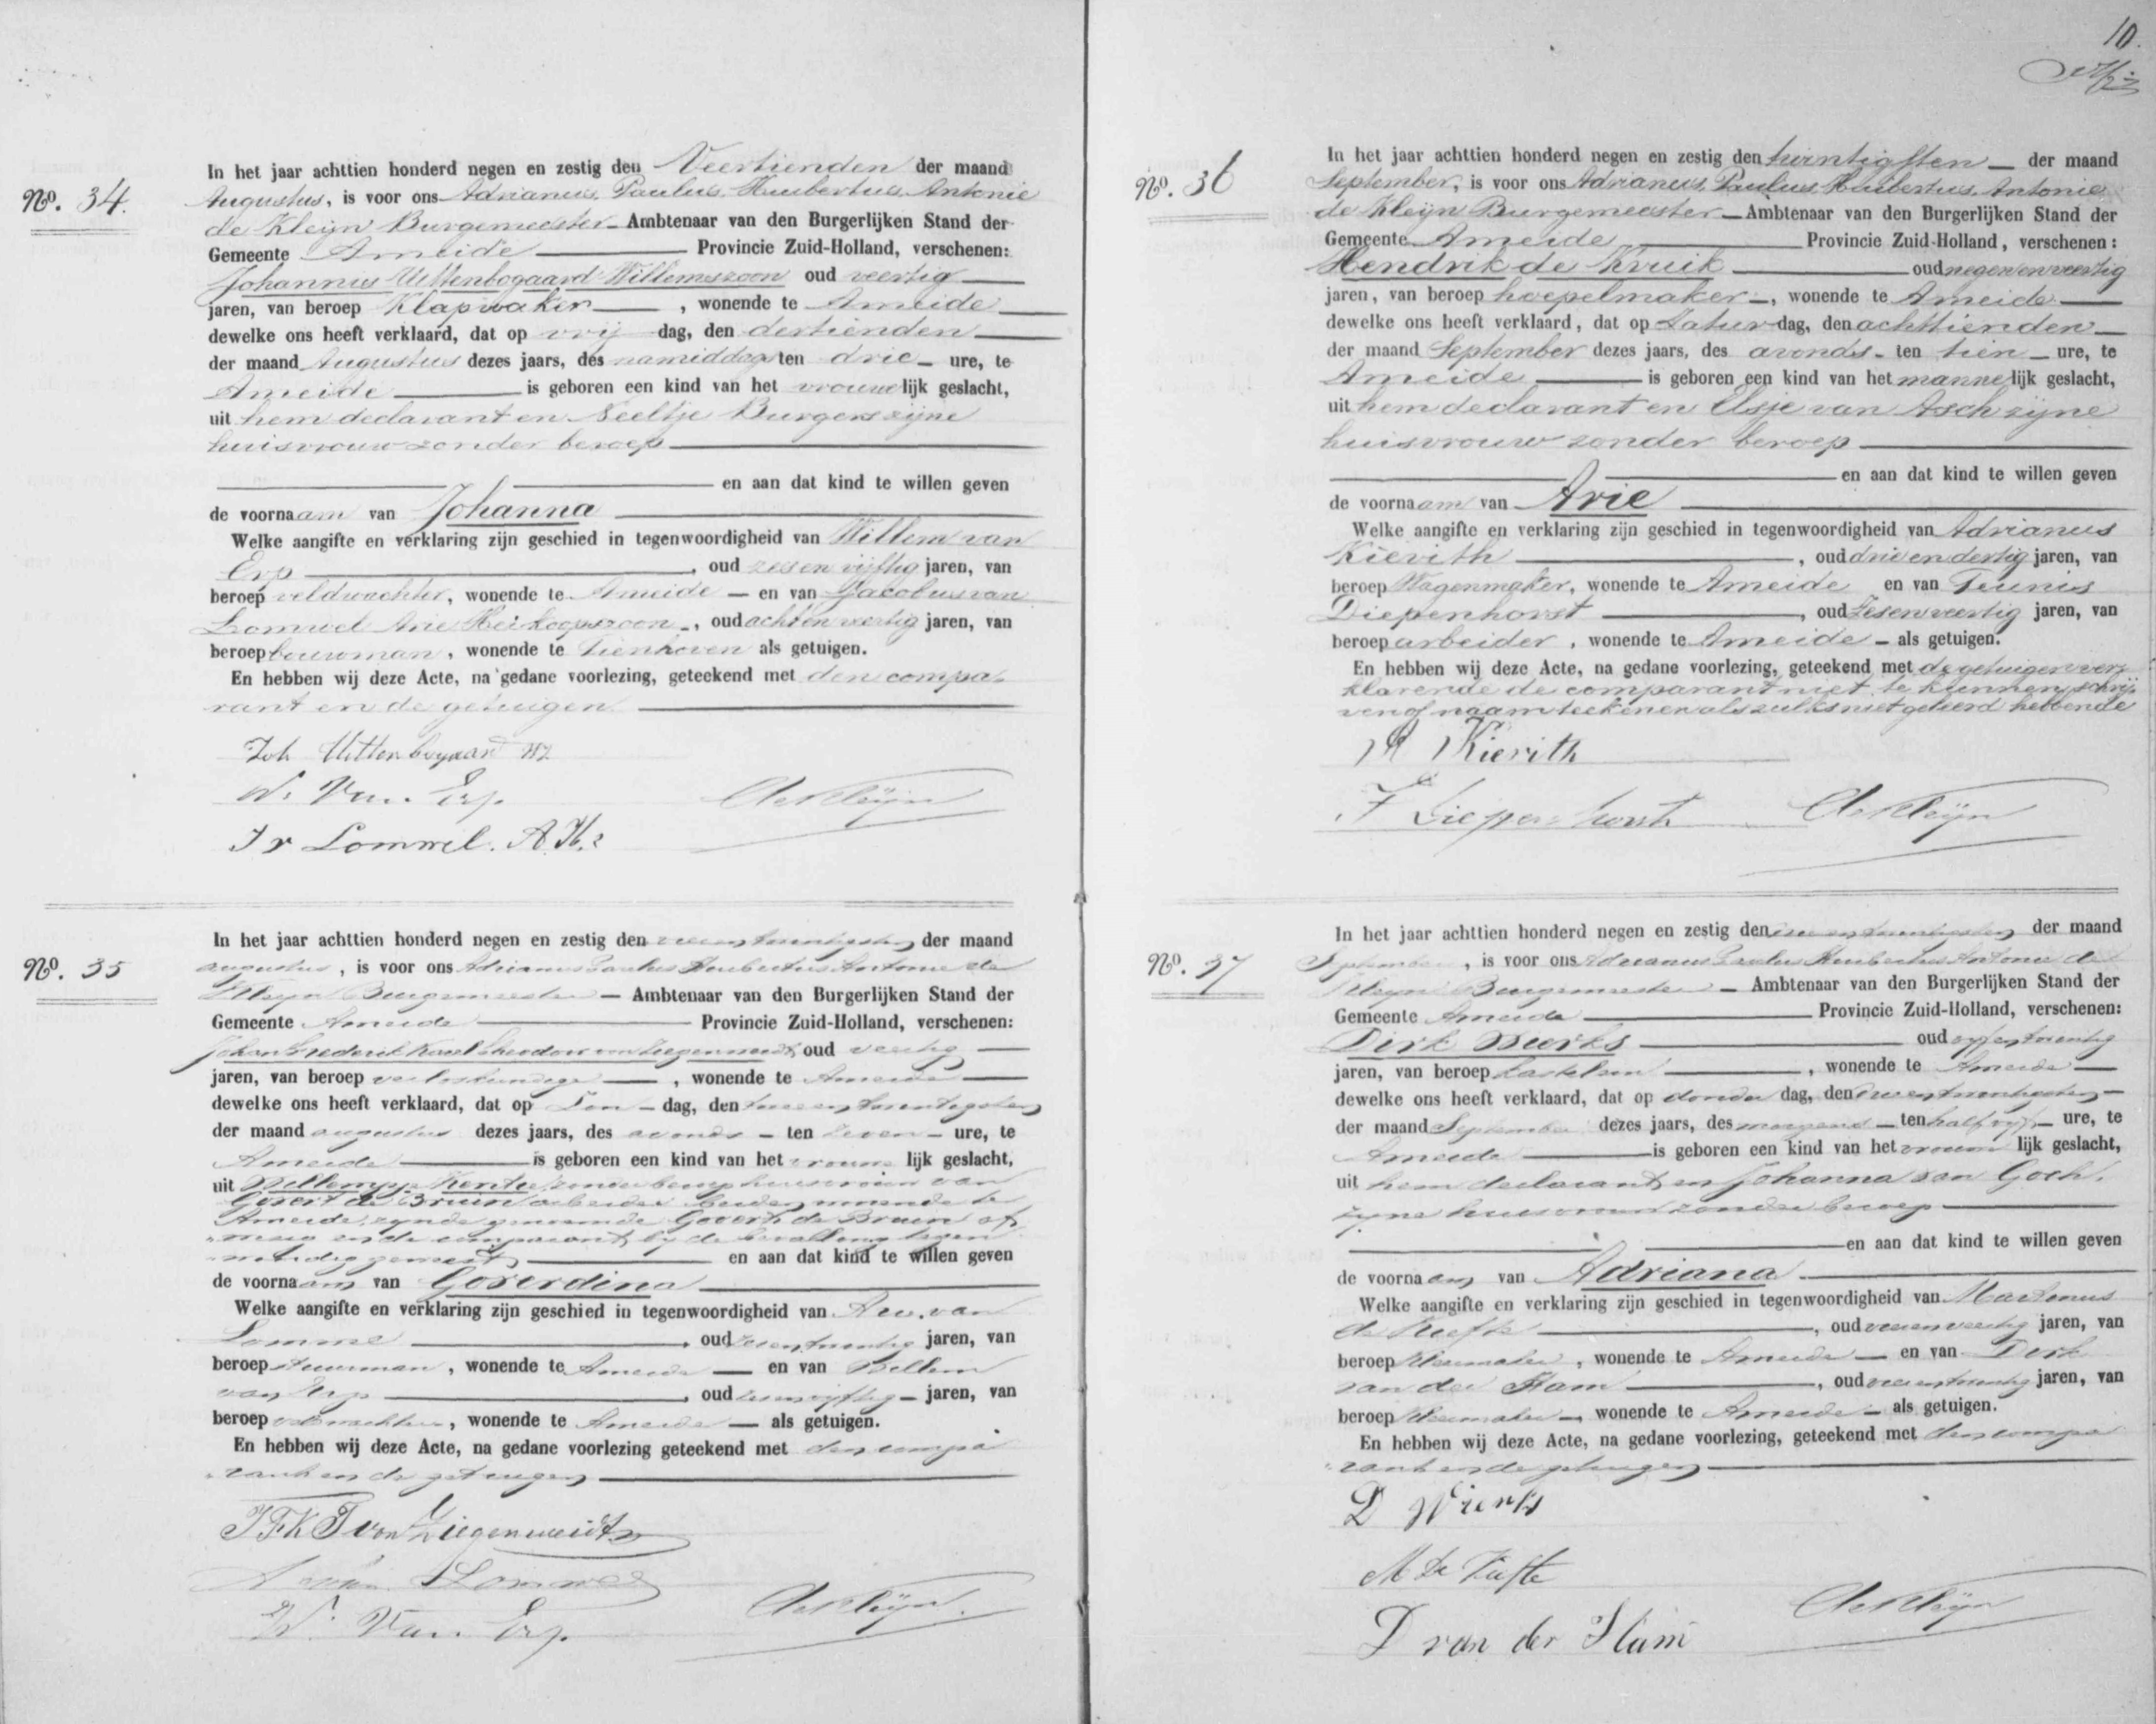 No. 34.
In het jaar achttien honderd negen en zestig den Veertienden der maand
Augustus, is voor ons Adrianus, Paulus, Huibertus, Antonie
de Kleijn Burgemeester Ambtenaar van den Burgerlijken Stand der
Gemeente Ameide Provincie Zuid-Holland, verschenen:
Johannis Uittenbogaard Willemszoon oud veertig
jaren, van beroep Klapwaker, wonende te Ameide
dewelke ons heeft verklaard, dat op vrij dag, den dertienden
der maand Augustus dezes jaars, des namiddags ten drie ure, te
Ameide is geboren een kind van het vrouwelijk geslacht,
uit hem declarant en Neeltje Burgers zijne
huisvrouw zonder beroep
en aan dat kind te willen geven
de voornaam van Johanna
Welke aangifte en verklaring zijn geschied in tegenwoordigheid van Willem van
Erp, oud zes en vijftig jaren, van
beroep veldwachter, wonende te Ameide en van Jacobus van
Lomwel Arie Heikoopszoon, oud acht en veertig jaren, van
beroep bouwman, wonende te Tienhoven als getuigen.
En hebben wij deze Acte, na gedane voorlezing, geteekend met den compa-
rant en de getuigen
Joh Uittenbogaard Wz
W. Van. Erp.
J v Lomwel. A. Hz
de Kleijn
No. 35
In het jaar achttien honderd negen en zestig den der maand
augustus, is voor ons Adrianus Paulus Huibertus Antonie de
Kleijn Burgemeester Ambtenaar van den Burgerlijken Stand der
Gemeente Ameide Provincie Zuid-Holland, verschenen:
Johan Frederik Karel Theodoor von Ziegenweidt, oud veertig
jaren, van beroep verloskundige, wonende te Ameide
dewelke ons heeft verklaard, dat op Zon dag, den twee en twintigsten
der maand augustus dezes jaars, des avonds ten zeven ure, te
Ameide is geboren een kind van het vrouwe lijk geslacht,
uit Willempje Kentie, zonder beroep huisvrouw van
Govert de Bruin arbeider beiden wonende te
Ameide, zynde genoemde Govert de Bruin af-
wezig en de comparant, by de bevalling tegen-
woordig geweest en aan dat kind te willen geven
de voornaam van Goverdina
Welke aangifte en verklaring zijn geschied in tegenwoordigheid van van
Lomme, oud jaren, van
beroep stuurman, wonende te Ameide en van Willem
van Erp, oud zes en vijftig jaren, van
beroep veldwachter, wonende te Ameide als getuigen.
En hebben wij deze Acte, na gedane voorlezing geteekend met den compa
rant en de getuigen
J F K T von Ziegenweidt
A van Lomme
W. Van. Erp.
de Kleijn
10.
No. 36
In het jaar achttien honderd negen en zestig den twintigsten der maand
September, is voor ons Adrianus, Paulus, Huibertus, Antonie
de Kleijn Burgemeester Ambtenaar van den Burgerlijken Stand der
Gemeente Ameide Provincie Zuid-Holland, verschenen:
Hendrik de Kruik oud negen en veertig
jaren, van beroep hoepelmaker, wonende te Ameide
dewelke ons heeft verklaard, dat op Zatur dag, den achttienden
der maand September dezes jaars, des avonds ten tien ure, te
Ameide is geboren een kind van het mannelijk geslacht,
uit hem declarant en Elsje van Asch zijne
huisvrouw zonder beroep
en aan dat kind te willen geven
de voornaam van Arie
Welke aangifte en verklaring zijn geschied in tegenwoordigheid van Adrianus
Kievith, oud drie en dertig jaren, van
beroep Wagenmaker, wonende te Ameide en van Teunis
Diepenhorst, oud zes en veertig jaren, van
beroep arbeider, wonende te Ameide als getuigen.
En hebben wij deze Acte, na gedane voorlezing, geteekend met de getuigen ver-
klarende de comparant niet te kunnen schrij-
ven of naamteekenen als zulks niet geleerd hebbende
A Kievith
T Diepenhorst
de Kleijn
No. 37
In het jaar achttien honderd negen en zestig den der maand
September, is voor ons Adrianus Paulus Huibertus Antonie de
Kleijn Burgemeester Ambtenaar van den Burgerlijken Stand der
Gemeente Ameide Provincie Zuid-Holland, verschenen:
Dirk Wierks oud vyf en twintig
jaren, van beroep kastelein, wonende te Ameide
dewelke ons heeft verklaard, dat op donder dag, den
der maand September dezes jaars, des morgens ten half vyf ure, te
Ameide is geboren een kind van het vrouwe lijk geslacht,
uit hem declarant en Johanna van Goch,
zyne huisvrouw zonder beroep
en aan dat kind te willen geven
de voornaam van Adriana
Welke aangifte en verklaring zijn geschied in tegenwoordigheid van Martinus
de, oud jaren, van
beroep Kleermaker, wonende te Ameide en van Dirk
van der Ham, oud jaren, van
beroep Kleermaker wonende te Ameide als getuigen.
En hebben wij deze Acte, na gedane voorlezing, geteekend met den compa
rant en de getuigen
D Wierks
M de
D van der Ham
de Kleijn